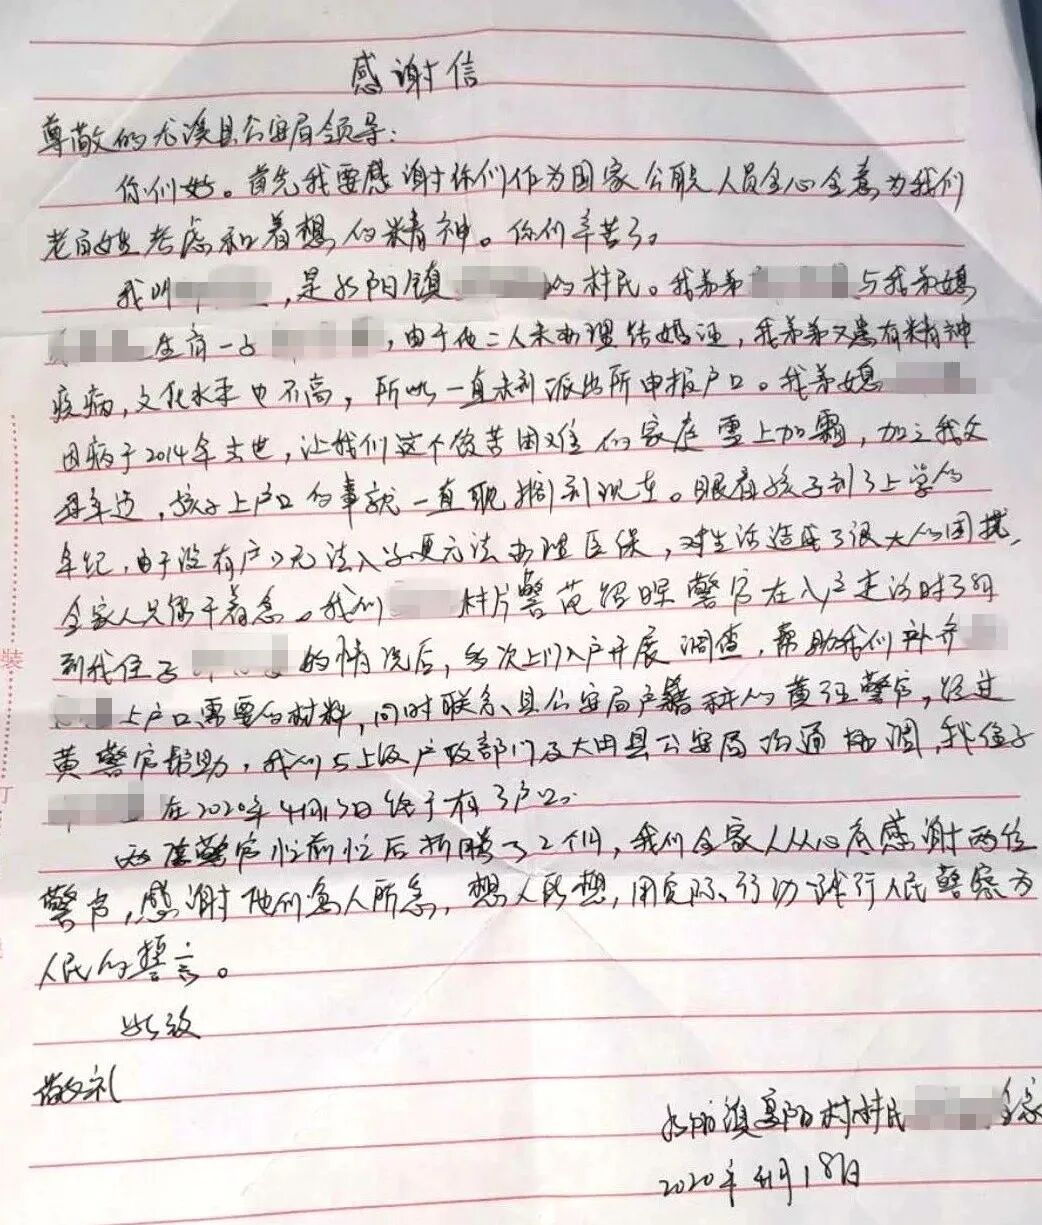 感谢信
尊敬的尤溪县公安局领导:
你们好。首先我要感谢你们作为国家公职人员全心全意为我们
老百姓考虑和着想的精神。你们辛苦了。
我叫,是水阳镇的村民。我弟弟与我弟媳
生育一子,由于他二人未办理结婚证,我弟弟又患有精神
疾病,文化水平也不高,所以一直未到派出所申报户口。我弟媳
因病于2014年去世,让我们这个贫苦困难的家庭雪上加霜,加之我父
母年迈,孩子上户口的事就一直耽搁到现在。眼看孩子到了上学的
年纪,由于没有户口无法入学更无法办理医保,对生活造成了很大的困扰,
全家人只能干着急。我们村片警范绍曔警官在入户走访时了解
到我侄子的情况后,多次上门入户开展调查,帮助我们补齐
上户口需要的材料,同时联系县公安局户籍科的黄钰警官,经过
黄警官帮助,我们与上级户政部门及大田县公安局沟通协调,我侄子
在2020年4月13日终于有了户口。
两位警官忙前忙后折腾了2个月,我们全家人从心底感谢两位
警官,感谢他们急人所急,想人民想,用实际行动践行人民警察为
人民的誓言。
此致
敬礼
村村民全家
2020年4月18日